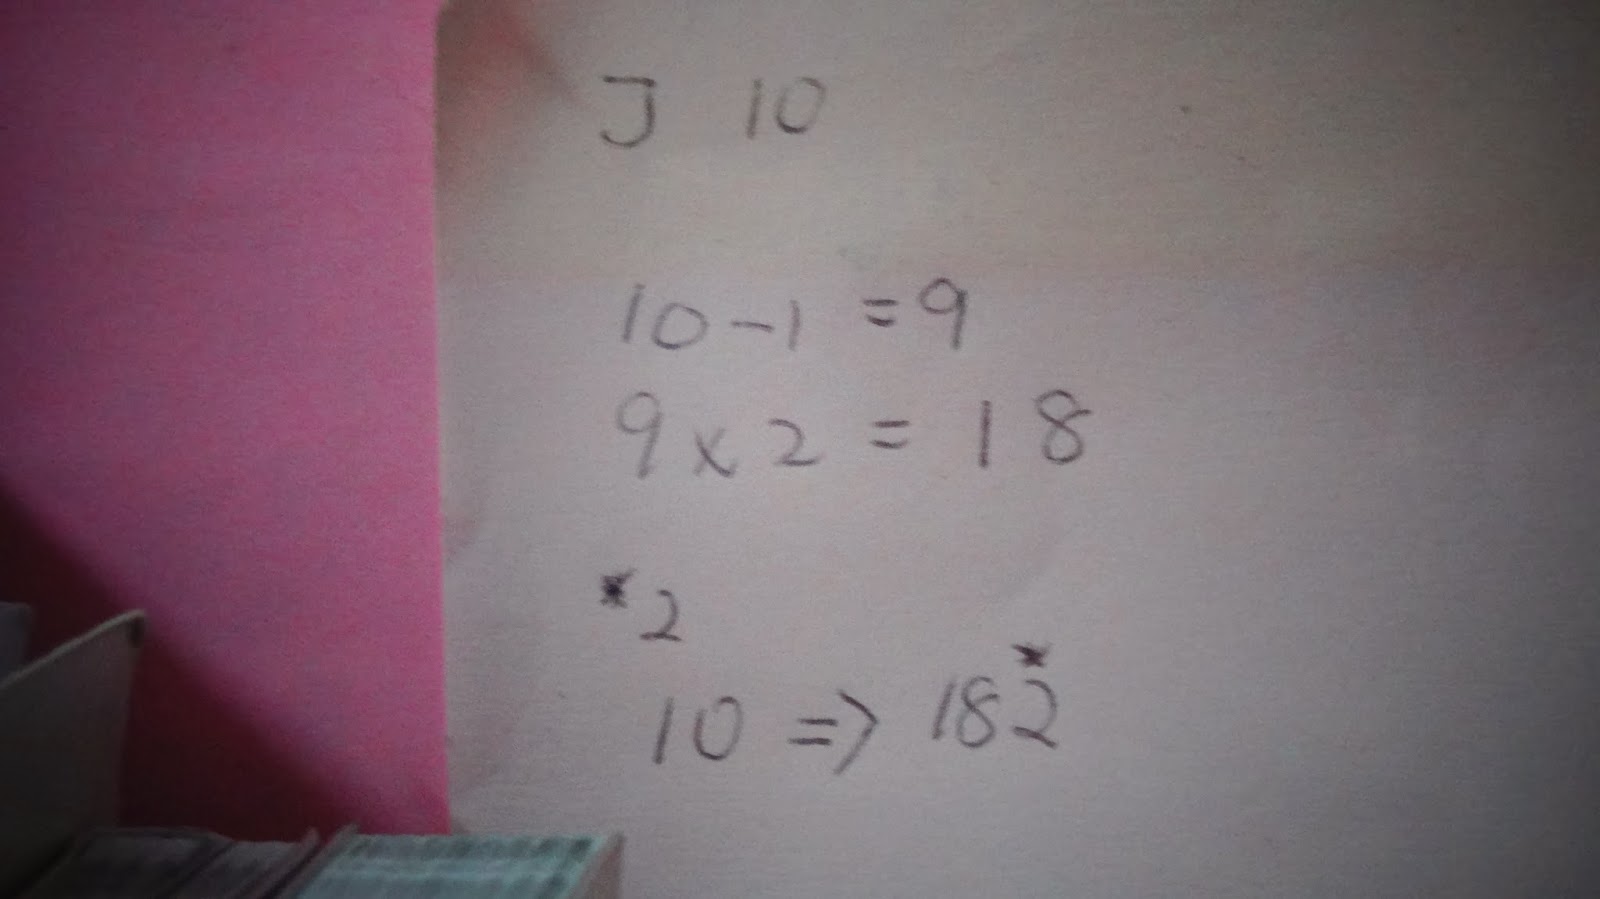 J 10
10-1 =9
9 x 2 = 18
*2
10 => 182*